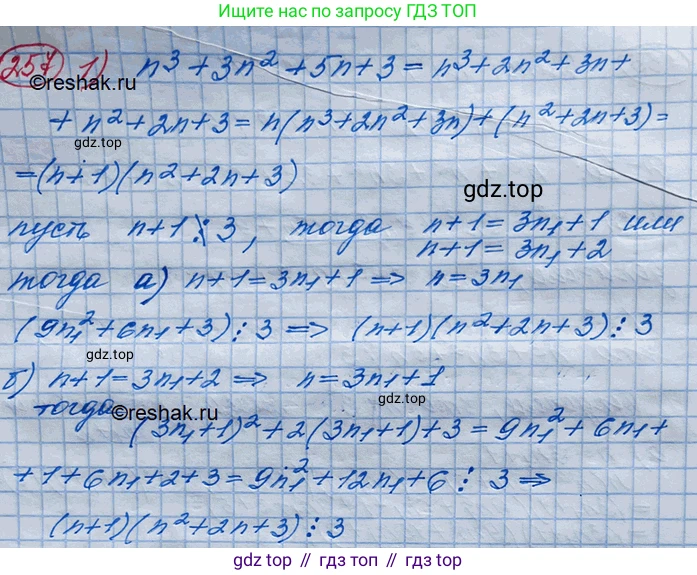 Ищите нас по запросу ГДЗ ТОП
257 1) n³ + 3n² + 5n + 3 = n³ + 2n² + 3n +
©reshak.ru
+ n² + 2n + 3 = n(n³ + 2n² + 3n) + (n² + 2n + 3) =
gdz.top
= (n + 1)(n² + 2n + 3)
gdz.top
пусть n + 1 ⋮̸ 3, тогда n + 1 = 3n₁ + 1 или
n + 1 = 3n₁ + 2
тогда а) n + 1 = 3n₁ + 1 => n = 3n₁
(9n₁² + 6n₁ + 3) ⋮ 3 => (n + 1)(n² + 2n + 3) ⋮ 3
gdz.top
б) n + 1 = 3n₁ + 2 => n = 3n₁ + 1
gdz.top
тогда
©reshak.ru
(3n₁ + 1)² + 2(3n₁ + 1) + 3 = 9n₁² + 6n₁ +
+ 1 + 6n₁ + 2 + 3 = 9n₁² + 12n₁ + 6 ⋮ 3 =>
(n + 1)(n² + 2n + 3) ⋮ 3
gdz.top // гдз топ // gdz.top